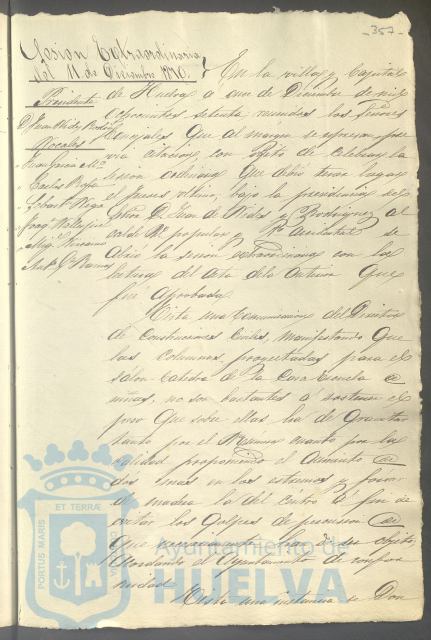 -357-
Sesion Extraordinaria
del 11 de Diciembre 1870.
En la villa y Capital
Presidente
de Huelva á once de Diciembre de mil
ochocientos setenta reunidos los Señores
Vocales
Concejales que al margen se espresan pre
via citacion, con objeto de celebrar la
sesion ordinaria que debió tener lugar
el Jueves ultimo, bajo la presidencia del
Señor D. Juan de Rodriguez Al
calde popular y accidental se
abrió la sesion extraordinaria con la
lectura del acta de la anterior que
fué aprobada.
Vista una Comunicacion del Director
de Construcciones Civiles, manifestando que
las columnas proyectadas para el
salon catedra de la Casa Escuela de
niñas, no son bastantes á sostener el
peso que sobre ellas ha de gravitar
tanto por el numero cuanto por la
calidad proponiendo el aumento de
dos mas en los estremos y forrar
de madera la del centro á fin de
evitar los golpes de
que
acordando el Ayuntamiento de confor
midad.
Vista una instancia de Don
PORTUS MARIS ET TERRÆ
Ayuntamiento de
HUELVA